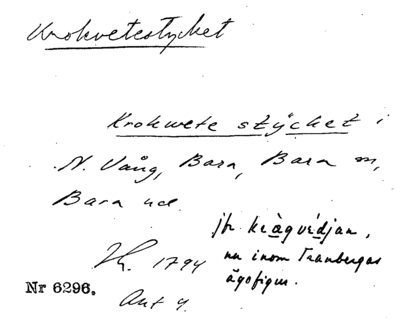 Krokvetestycket
Krokwete stÿcket i
N. Vång, Bara, Bara m,
Bara hd.
jfr krågvídjan,
nu inom Tranbergas
ägofigur.
1794
Nr 6296.
Akt 4.